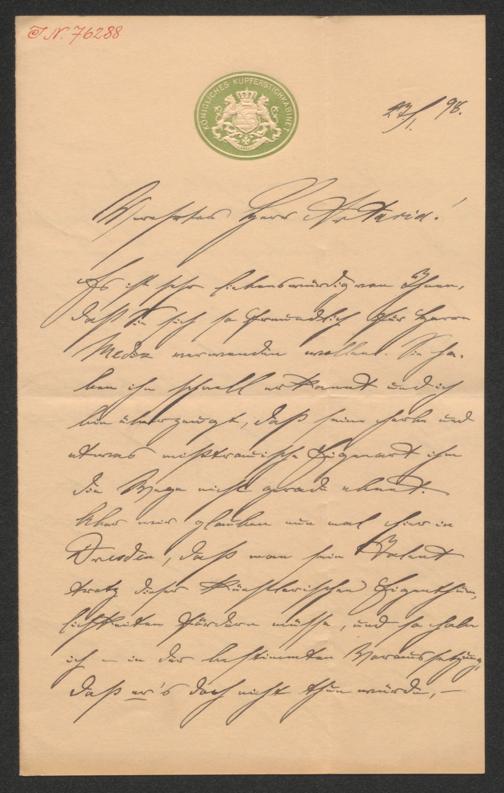 I.N. 76288
KÖNIGLICHES KUPFERSTICHKABINET
27/1. 98.
Verehrter Herr Artaria!
Es ist sehr liebenswürdig von Ihnen,
daß Sie sich so freundlich für Herrn
Mediz verwenden wollen. Sie ha-
ben ihn schnell erkannt und ich
bin überzeugt, daß seine herbe und
etwas mißtrauische Eigenart ihm
die Wege nicht gerade ebnet.
Aber wir glauben nun mal hier in
Dresden, daß man sein Talent
trotz dieser künstlerischen Eigenthüm-
lichkeiten fördern müsse, und so habe
ich – in der bestimmten Voraussetzung,
daß er's doch nicht thun würde, –